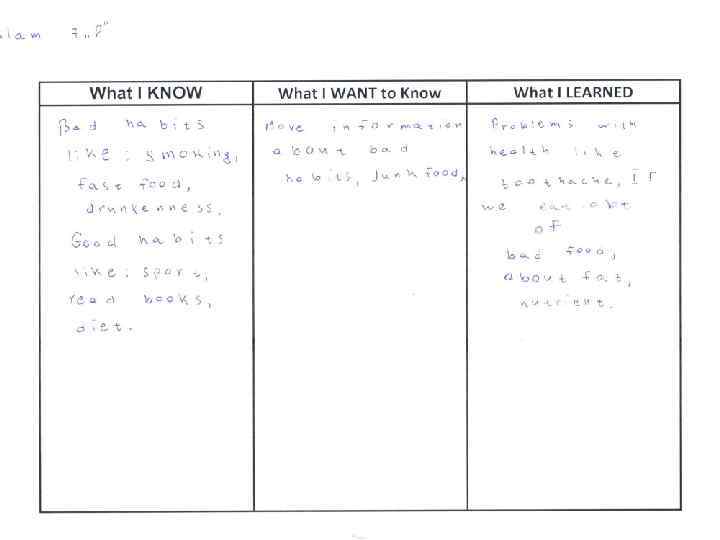 slam 7 "P"
What I KNOW
What I WANT to Know
What I LEARNED
Bad habits
like: smoking,
fast food,
drunkenness.
Good habits
like: sport,
read books,
diet.
More information
about bad
habits, Junk food,
Problems with
health like
toothache, If
we eat a lot
of
bad food,
about fat,
nutrient.